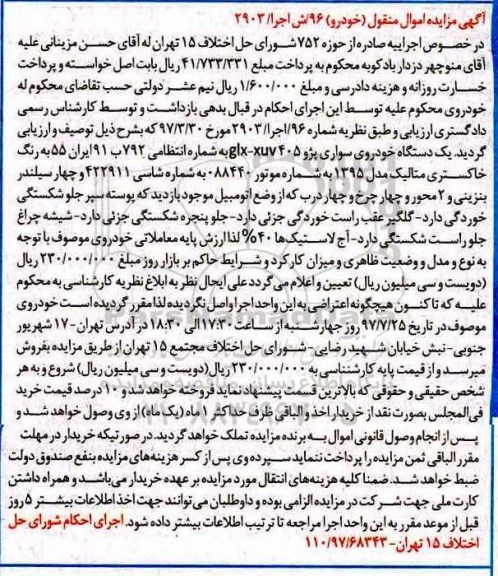 آگهی مزایده اموال منقول (خودرو) ۹۶/ش اجرا/ ۲۹۰۳
در خصوص اجراییه صادره از حوزه ۷۵۲ شورای حل اختلاف ۱۵ تهران له آقای حسن مزینانی علیه
آقای منوچهر دزدار بادکوبه محکوم به پرداخت مبلغ ۴۱/۷۳۳/۳۳۱ ریال بابت اصل خواسته و پرداخت
خسارت روزانه و هزینه دادرسی و مبلغ ۱/۶۰۰/۰۰۰ ریال نیم عشر دولتی حسب تقاضای محکوم له
خودروی محکوم علیه توسط این اجرای احکام در قبال بدهی بازداشت و توسط کارشناس رسمی
دادگستری ارزیابی و طبق نظریه شماره ۹۶/اجرا/۲۹۰۳ مورخ ۹۷/۳/۳۰ که بشرح ذیل توصیف و ارزیابی
گردید. یک دستگاه خودروی سواری پژو ۴۰۵ glx-xuv به شماره انتظامی ۷۹۲ ب ۹۱ ایران ۵۵ به رنگ
خاکستری متالیک مدل ۱۳۹۵ به شماره موتور ۰۸۸۴۴۰ به شماره شاسی ۴۲۲۹۱۱ و چهار سیلندر
بنزینی و ۲ محور و چهار چرخ و چهار درب که از وضع اتومبیل موجود بازدید که پوسته سپر جلو شکستگی
خوردگی دارد- گلگیر عقب راست خوردگی جزئی دارد- جلو پنجره شکستگی جزئی دارد- شیشه چراغ
جلو راست شکستگی دارد- آج لاستیک‌ها ۴۰% لذا ارزش پایه معاملاتی خودروی موصوف با توجه
به نوع و مدل و وضعیت ظاهری و میزان کارکرد و شرایط حاکم بر بازار روز مبلغ ۲۳۰/۰۰۰/۰۰۰ ریال
(دویست و سی میلیون ریال) تعیین و اعلام می گردد علی ایحال نظر به ابلاغ نظریه کارشناسی به محکوم
علیه که تا کنون هیچگونه اعتراضی به این واحد اجرا واصل نگردیده لذا مقرر گردیده است خودروی
موصوف در تاریخ ۹۷/۷/۲۵ روز چهارشنبه از ساعت ۱۷:۳۰ الی ۱۸:۳۰ در آدرس تهران- ۱۷ شهریور
جنوبی- نبش خیابان شهید رضایی- شورای حل اختلاف مجتمع ۱۵ تهران از طریق مزایده بفروش
میرسد و از قیمت پایه کارشناسی به ۲۳۰/۰۰۰/۰۰۰ ریال (دویست و سی میلیون ریال) شروع و به هر
شخص حقیقی و حقوقی که بالاترین قیمت پیشنهاد نماید فروخته خواهد شد و ۱۰ درصد قیمت خرید
فی المجلس بصورت نقد از خریدار اخذ و الباقی ظرف حداکثر ۱ ماه (یک ماه) از وی وصول خواهد شد و
پس از انجام وصول قانونی اموال به برنده مزایده تملک خواهد گردید. در صورتیکه خریدار در مهلت
مقرر الباقی ثمن مزایده را پرداخت ننماید سپرده وی پس از کسر هزینه‌های مزایده بنفع صندوق دولت
ضبط خواهد شد. ضمنا کلیه هزینه‌های انتقال مورد مزایده بر عهده خریدار می‌باشد و همراه داشتن
کارت ملی جهت شرکت در مزایده الزامی بوده و داوطلبان می‌توانند جهت اخذ اطلاعات بیشتر ۵ روز
قبل از موعد مقرر به این واحد اجرا مراجعه تا ترتیب اطلاعات بیشتر داده شود. اجرای احکام شورای حل
اختلاف ۱۵ تهران- ۱۱۰/۹۷/۶۸۳۴۳